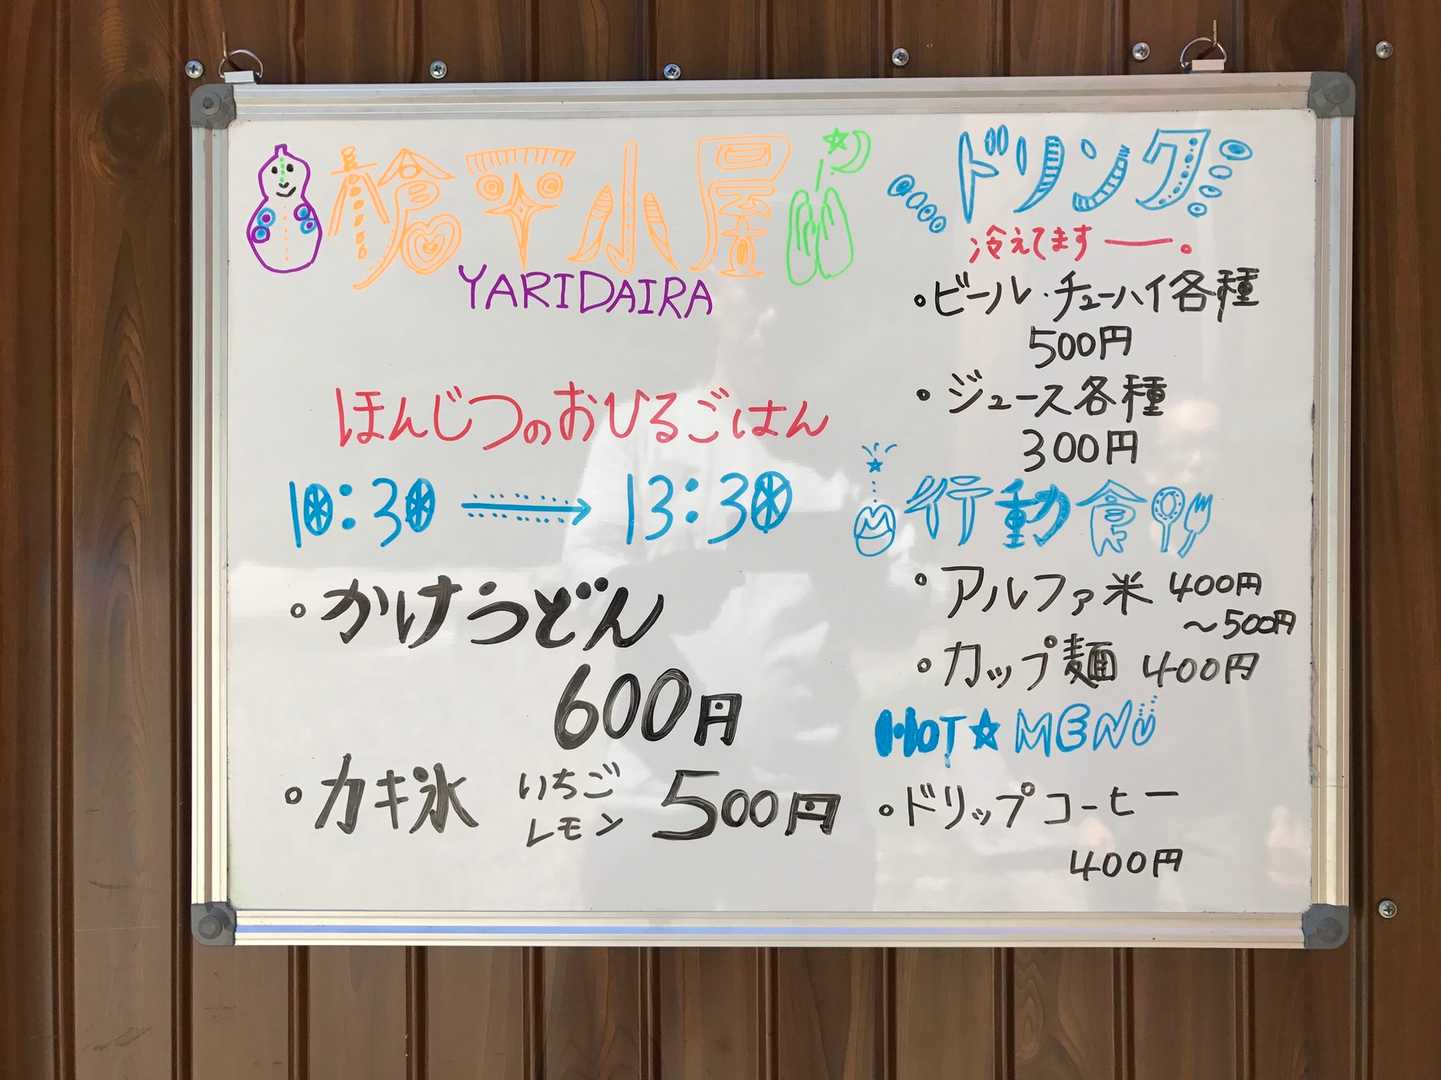 槍平小屋
YARIDAIRA
ほんじつのおひるごはん
10:30 → 13:30
・かけうどん
600円
・カキ氷 いちご レモン 500円
ドリンク
冷えてます——。
・ビール・チューハイ各種
500円
・ジュース各種
300円
行動食
・アルファ米 400円
～500円
・カップ麺 400円
HOT☆MENU
・ドリップコーヒー
400円